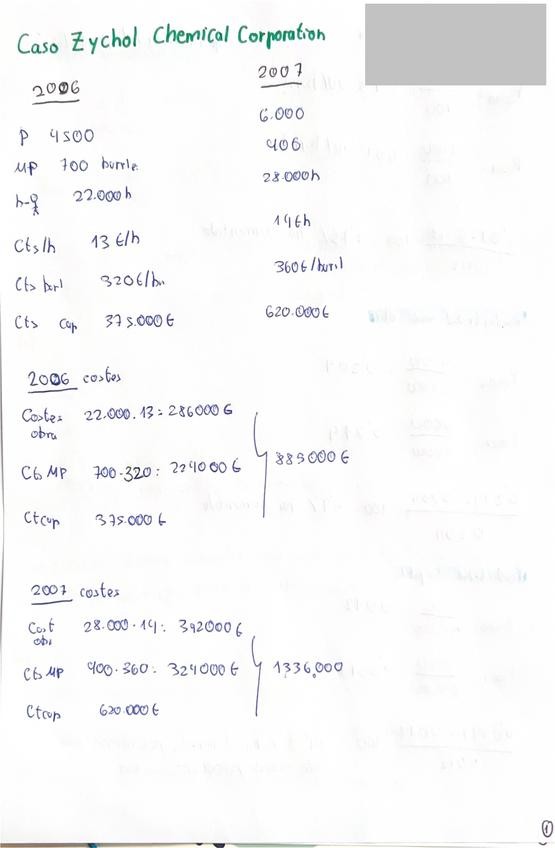 Caso Zychol Chemical Corporation
2006 2007
P 4500 6.000
MP 700 burrile
28.000h
h- 22.000h
Cts/h 13 €/h 14€h
Cts brl 320€/br. 360€/buril
Cts Cap 375.000€ 620.000€
2006 costes
Costes obra 22.000.13 = 286000 €
Cts MP 700.320: 224000 € 885000 €
Ctcap 375.000 €
2007 costes
Cost obr 28.000.14: 392000€
Cts MP 900.360: 324000€ 1336,000
Ctcap 620.000€
1